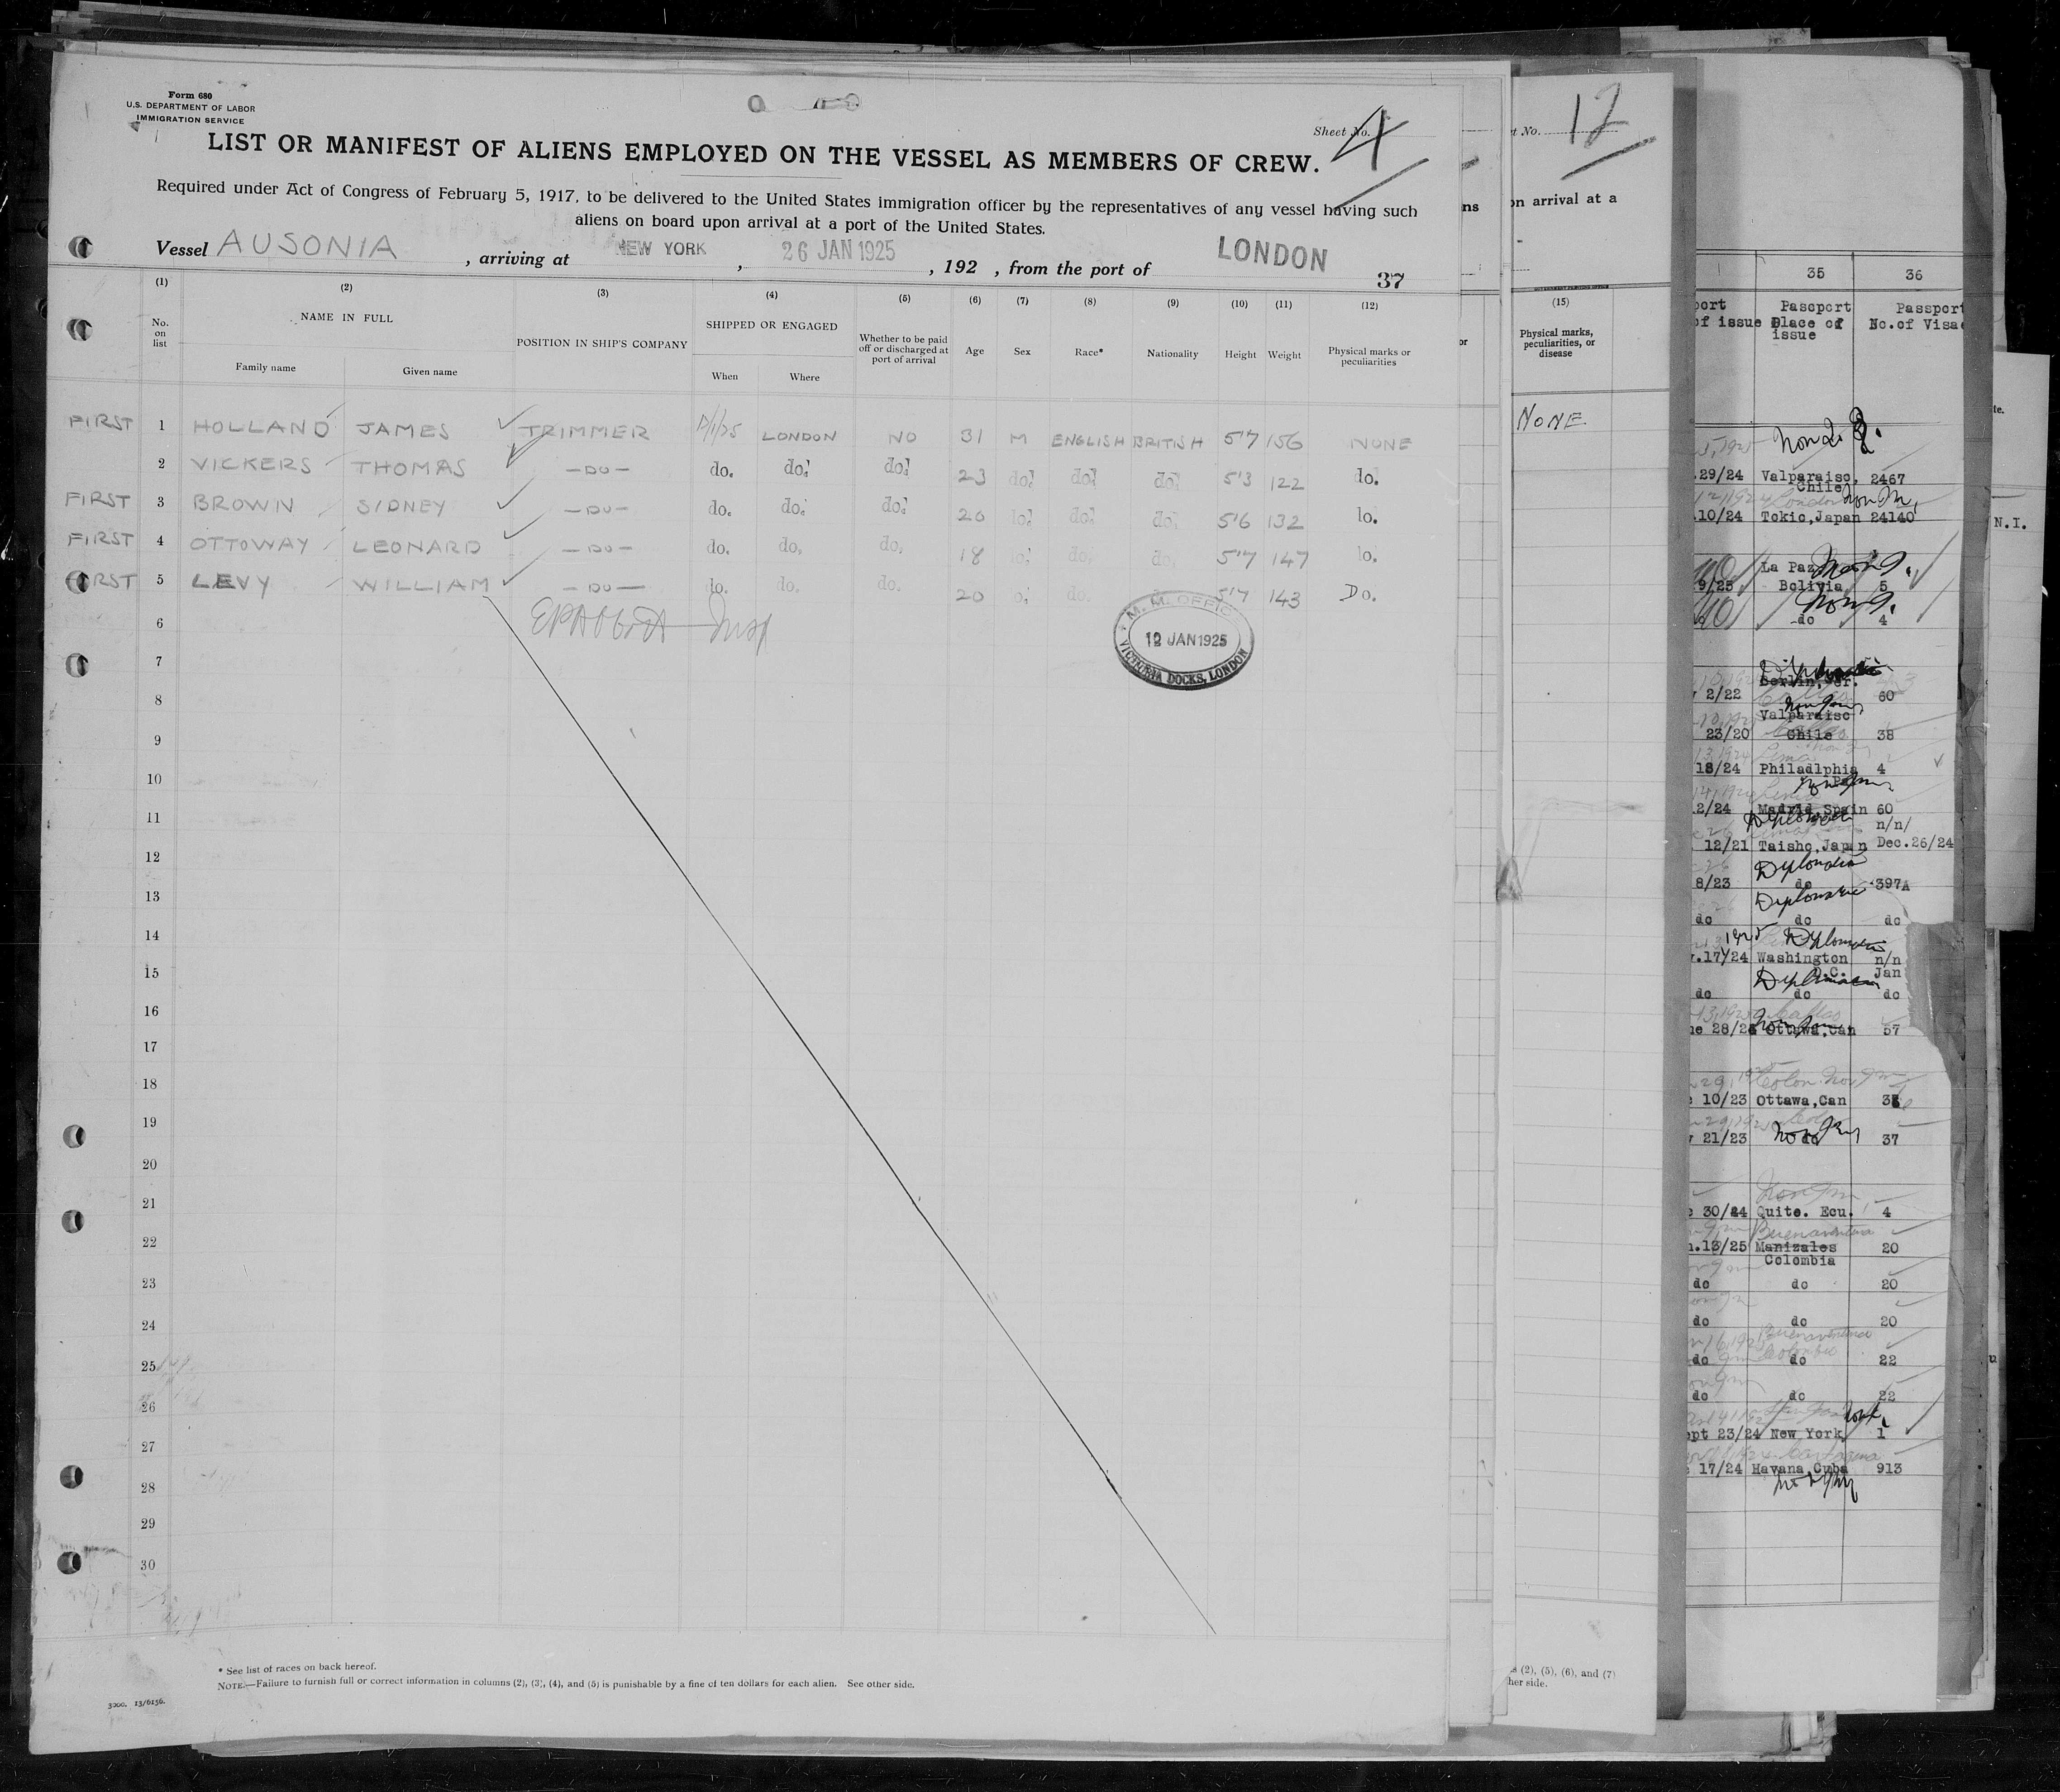 Form 680
U.S. DEPARTMENT OF LABOR
IMMIGRATION SERVICE
Sheet No. 4
LIST OR MANIFEST OF ALIENS EMPLOYED ON THE VESSEL AS MEMBERS OF CREW.
Required under Act of Congress of February 5, 1917, to be delivered to the United States immigration officer by the representatives of any vessel having such
aliens on board upon arrival at a port of the United States.
Vessel AUSONIA, arriving at NEW YORK, 26 JAN 1925, 192 , from the port of LONDON
37
(1) (2) (3) (4) (5) (6) (7) (8) (9) (10) (11) (12)
No. on list NAME IN FULL POSITION IN SHIP'S COMPANY SHIPPED OR ENGAGED Whether to be paid off or discharged at port of arrival Age Sex Race* Nationality Height Weight Physical marks or peculiarities
Family name Given name When Where
FIRST 1 HOLLAND JAMES TRIMMER LONDON NO 31 M ENGLISH BRITISH 5'7 156 NONE
2 VICKERS THOMAS —DO— do. do. do. 23 do. do. do. 5'3 122 do.
FIRST 3 BROWN SIDNEY —DO— do. do. do. 20 do. do. do. 5'6 132 lo.
FIRST 4 OTTOWAY LEONARD —DO— do. do. do. 18 do. do. 5'7 147 lo.
FIRST 5 LEVY WILLIAM —DO— do. do. do. 20 do. 5'7 143 Do.
6
M. M. OFFICE
12 JAN 1925
VICTORIA DOCKS, LONDON
7
8
9
10
11
12
13
14
15
16
17
18
19
20
21
22
23
24
25
26
27
28
29
30
* See list of races on back hereof.
NOTE.—Failure to furnish full or correct information in columns (2), (3), (4), and (5) is punishable by a fine of ten dollars for each alien. See other side.
3000. 13/6156.
ns
or
t No. 12
on arrival at a
(15)
Physical marks,
peculiarities, or
disease
NONE
s (2), (5), (6), and (7)
her side.
35 36
port Pasport Passport
of issue Place of No. of Visae
issue
.29/24 Valparaiso, 2467
Chile
.10/24 Tokio,Japan 24140
La Paz
9/25 Bolivia 5
do 4
Berlin,Ger.
2/22 60
Valparaiso
23/20 Chile 38
18/24 Philadlphia 4
Pa
2/24 Madrid,Spain 60
n/n/
12/21 Taisho,Japan Dec.26/24
Diplomatic
8/23 do 397A
Diplomatic
do do do
1925 Diplomatic
.17/24 Washington n/n
D.C. Jan
Diplomatic
do do do
ne 28/24 Ottawa,Can 57
10/23 Ottawa,Can
21/23 do 37
30/24 Quito. Ecu. 4
Buenaventura
.13/25 Manizales 20
Colombia
do do 20
do do 20
Buenaventura
do do 22
do do 22
ept 23/24 New York 1
17/24 Havana,Cuba 913
te.
N.I.
u